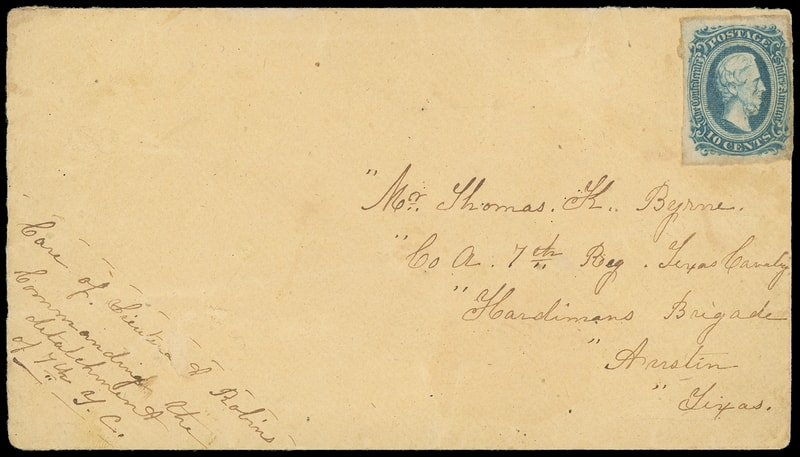 POSTAGE
The Confederate States of America
10 CENTS
" Mr. Thomas. K.. Byrne.
" Co A. 7th Reg. Texas Cavalry
" Hardimans Brigade
" Austin
" Texas.
Care of Lieutena t Robins
Commanding the
detatchment
of 7th T. C..